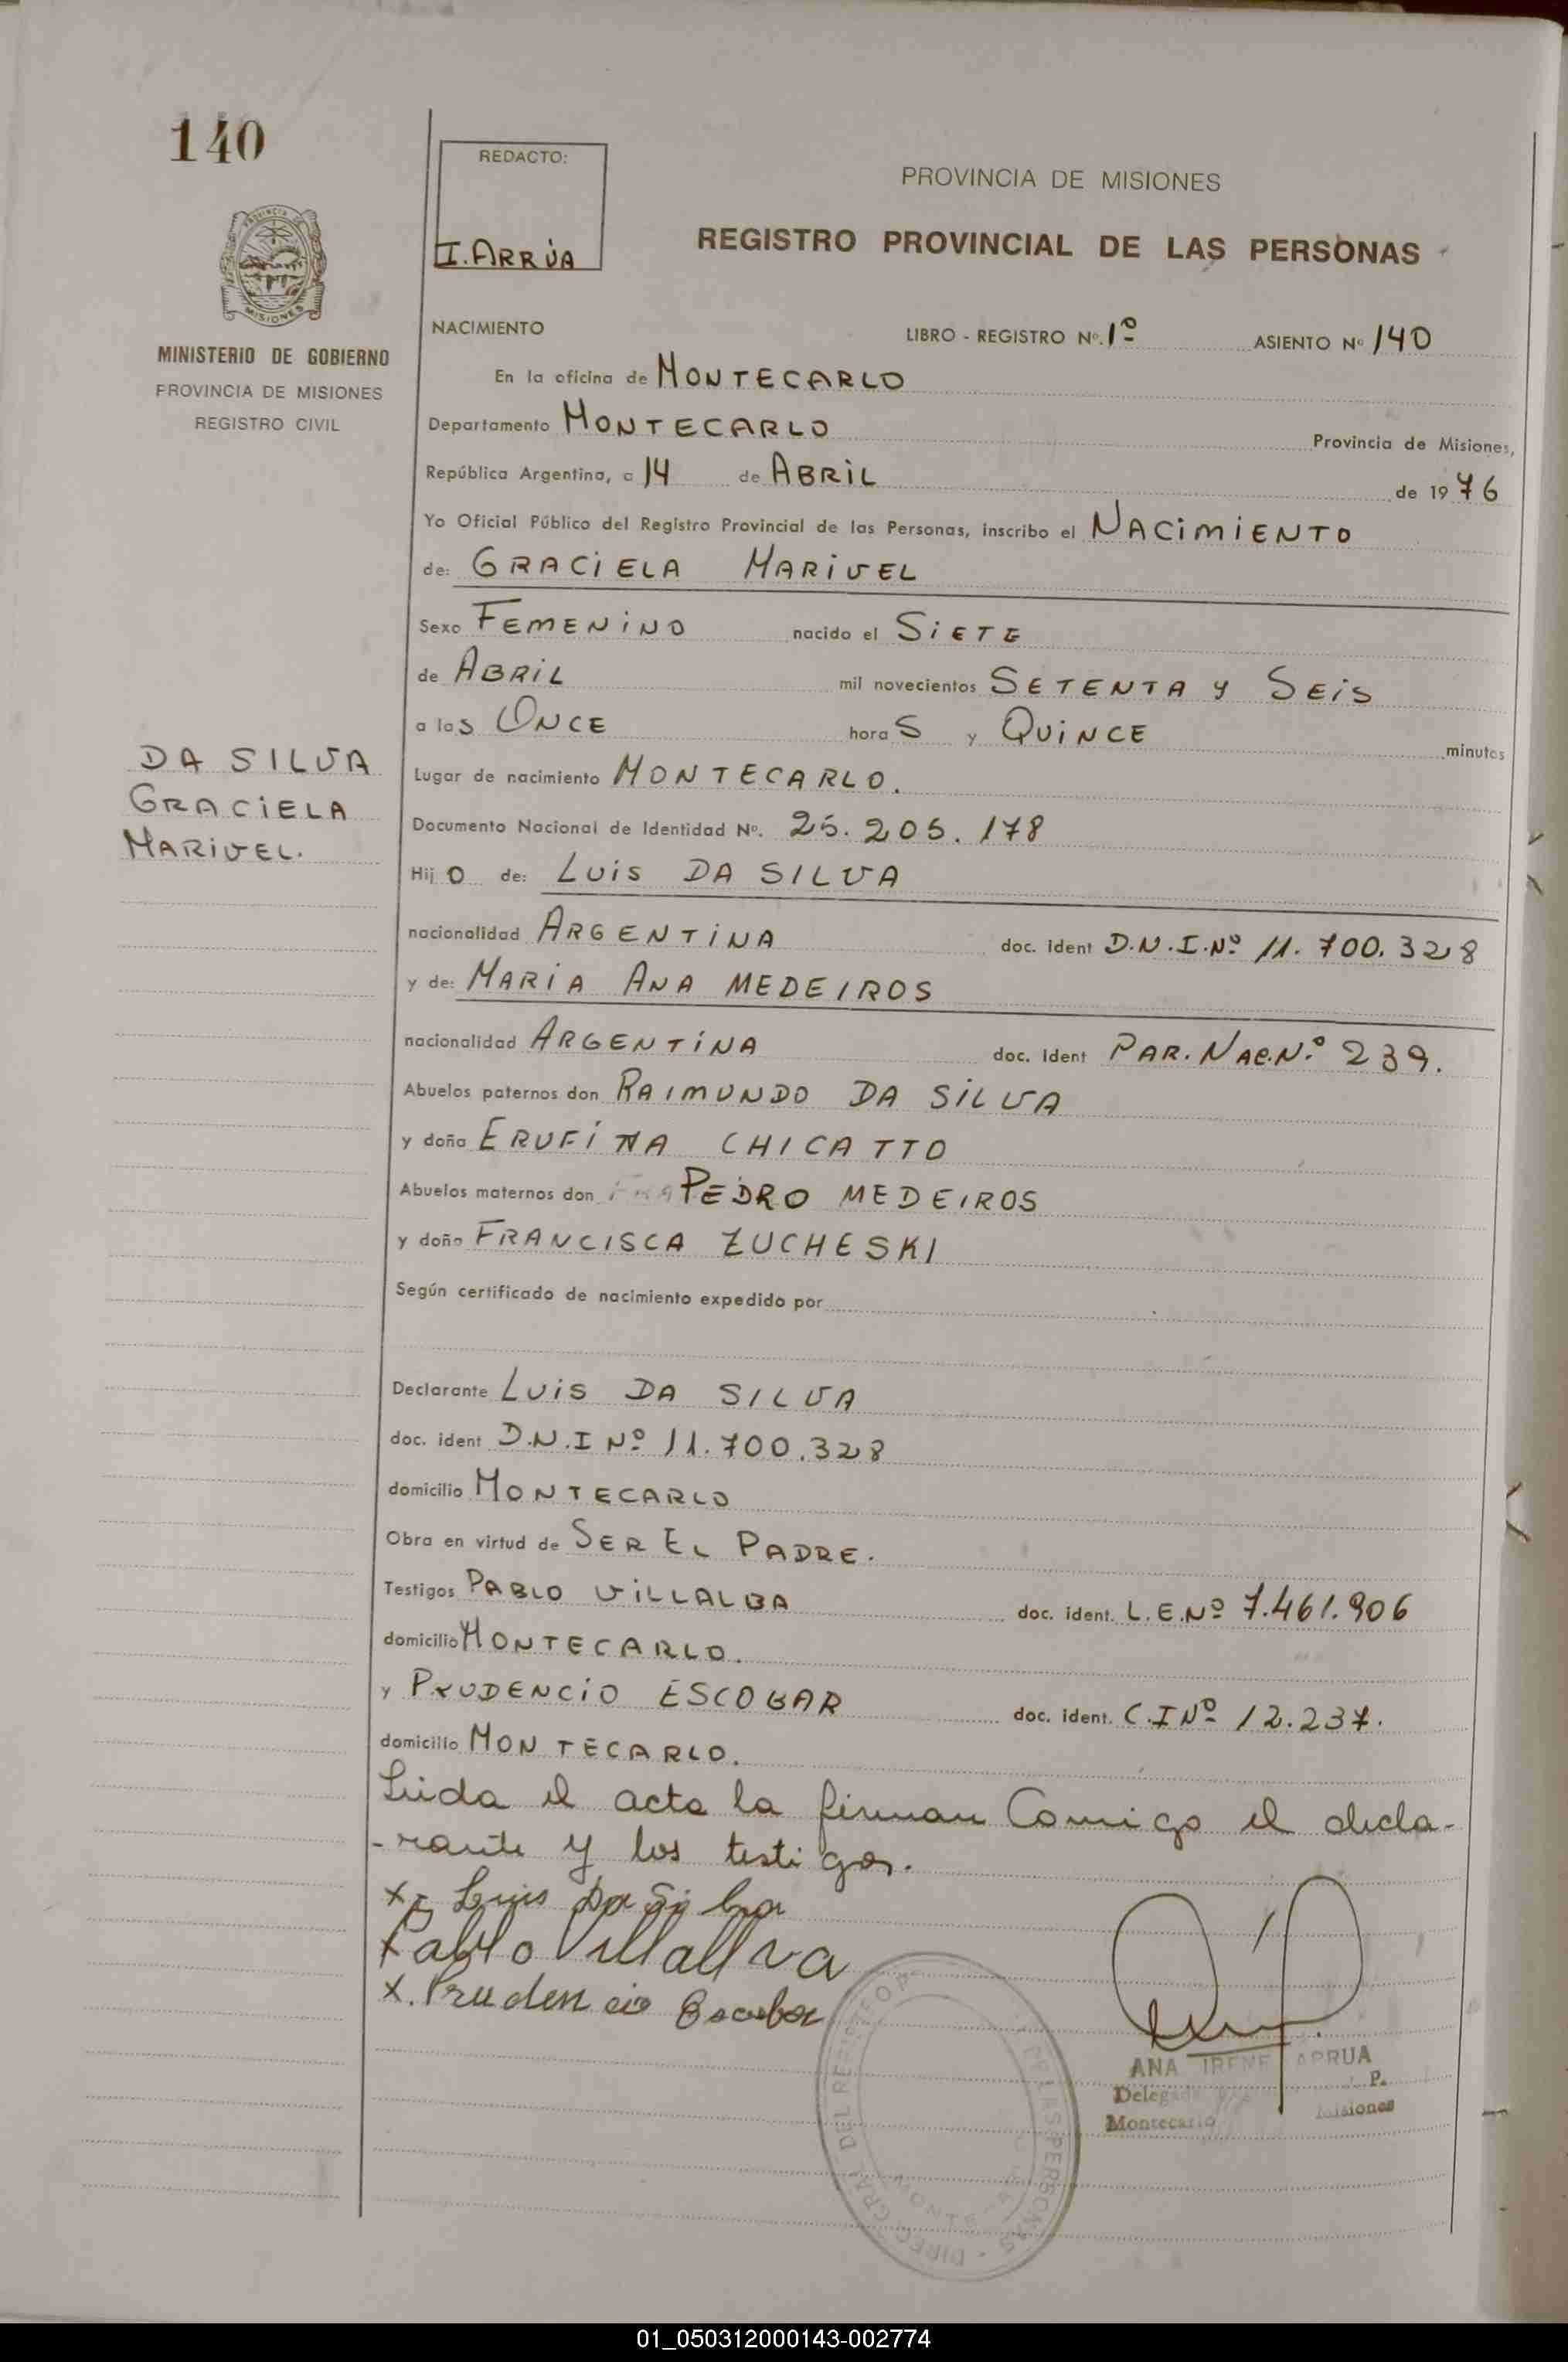 140
REDACTO:
I. ARRÚA
PROVINCIA DE MISIONES
REGISTRO PROVINCIAL DE LAS PERSONAS
MISIONES
MINISTERIO DE GOBIERNO
PROVINCIA DE MISIONES
REGISTRO CIVIL
NACIMIENTO LIBRO - REGISTRO Nº. 1º ASIENTO Nº 140
En la oficina de MONTECARLO
Departamento MONTECARLO Provincia de Misiones,
República Argentina, a 14 de ABRIL de 1976
Yo Oficial Público del Registro Provincial de las Personas, inscribo el NACIMIENTO
de: GRACIELA MARIVEL
Sexo FEMENINO nacido el SIETE
de ABRIL mil novecientos SETENTA Y SEIS
a las ONCE horas y QUINCE minutos
DA SILVA
GRACIELA
MARIVEL.
Lugar de nacimiento MONTECARLO.
Documento Nacional de Identidad Nº. 25.205.178
Hijo de: LUIS DA SILVA
nacionalidad ARGENTINA doc. Ident D.N.I.Nº 11.700.328
y de: MARIA ANA MEDEIROS
nacionalidad ARGENTINA doc. Ident PAR. NAC.Nº 239.
Abuelos paternos don RAIMUNDO DA SILVA
y doña ERUFINA CHICATTO
Abuelos maternos don PEDRO MEDEIROS
y doña FRANCISCA ZUCHESKI
Según certificado de nacimiento expedido por
Declarante LUIS DA SILVA
doc. ident D.N.I Nº 11.700.328
domicilio MONTECARLO
Obra en virtud de SER EL PADRE.
Testigos PABLO VILLALBA doc. ident. L.E.Nº 7.461.906
domicilio MONTECARLO.
y PRUDENCIO ESCOBAR doc. ident. C.I Nº 12.237.
domicilio MONTECARLO.
Leida el acta la firman Comigo el decla-
-rante y los testigos.
x Luis Da Silva
x Pablo Villallva
x. Prudencio Escobar
ANA IRENE ARRUA
Delegada P.
Montecarlo Misiones
DIREC. GRAL. DEL REGISTRO P. DE LAS PERSONAS
01_050312000143-002774